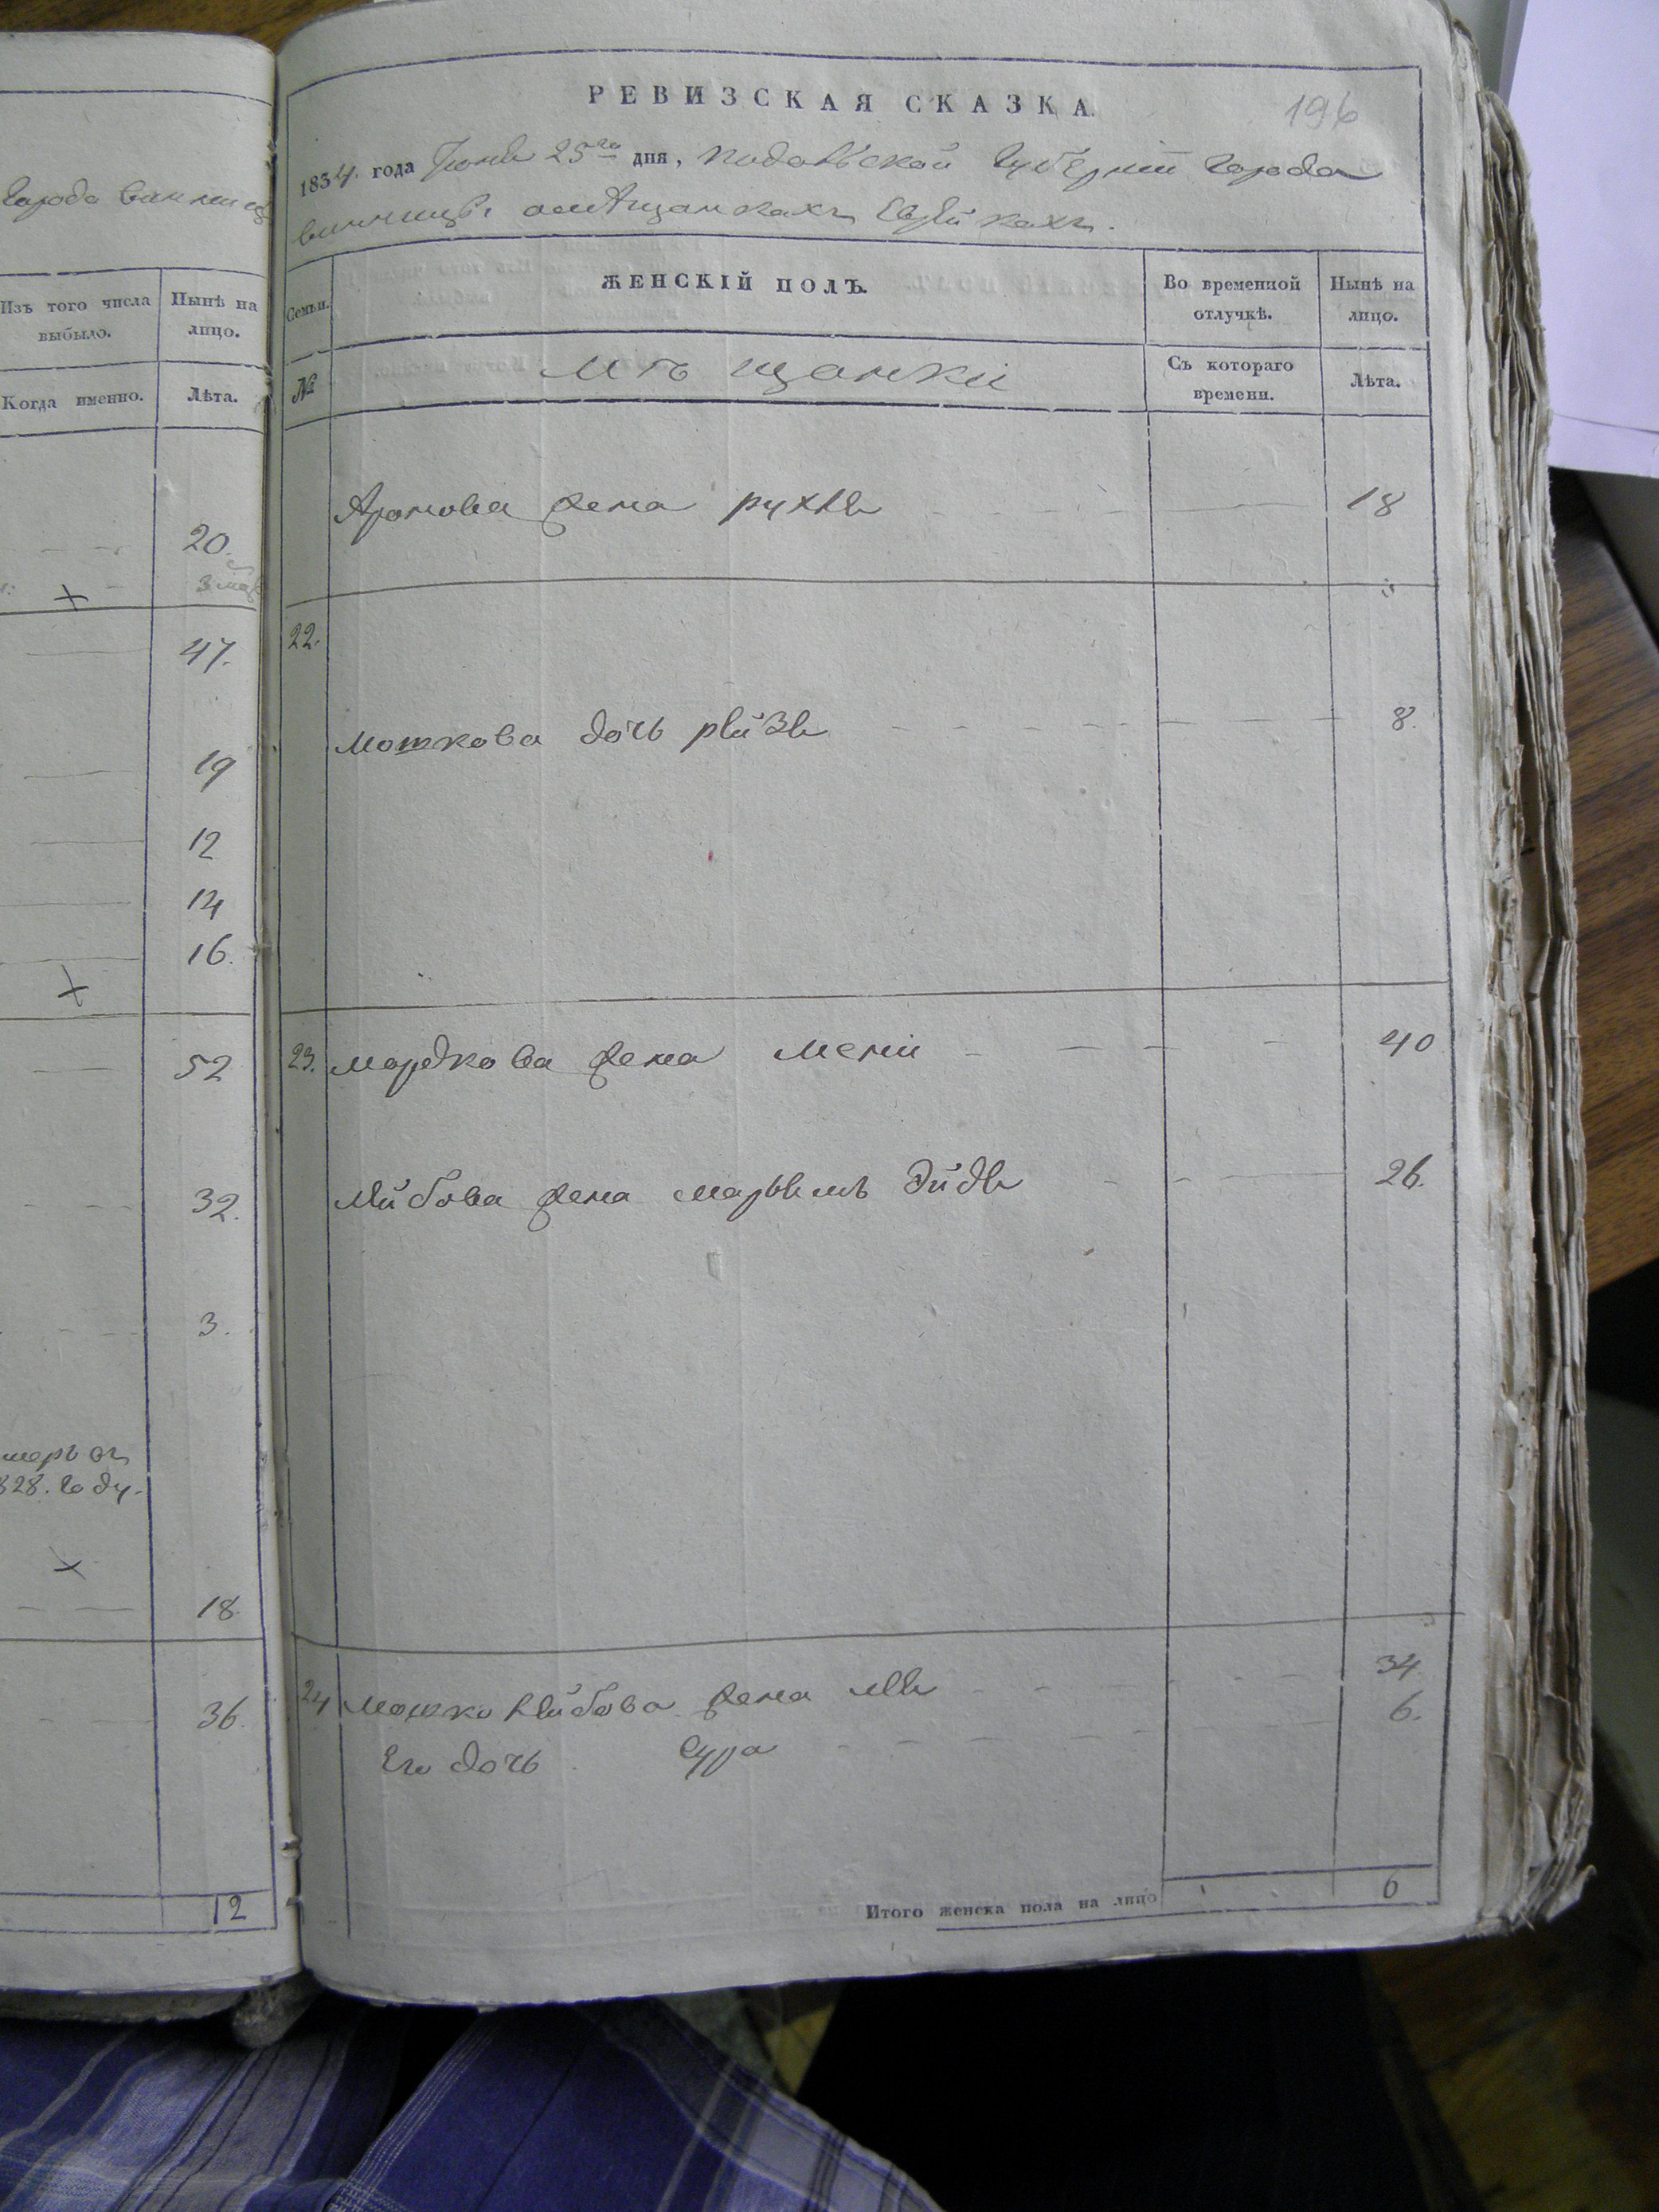 города винниц
Изъ того числа выбыло.
Нынѣ на лицо.
Когда именно.
Лѣта.
20.
47.
19
12
14
16.
52
32.
3.
828. году.
18.
36.
12
196
РЕВИЗСКАЯ СКАЗКА.
1834. года Июня 25го дня, Подольской Губерніи города
винницы, омѣщанкахъ Еврейкахъ.
Семьи.
ЖЕНСКІЙ ПОЛЪ.
Во временной отлучкѣ.
Нынѣ на лицо.
№
Мѣщанки
Съ котораго времени.
Лѣта.
Аронова жена рухля 18
22.
мошкова дочь рейзя 8.
23. мордкова жена мени 40
лейбова жена Эйдя 26.
24 мошко лейбова жена 34
Его дочь Сура 6.
Итого женска пола на лицо 6